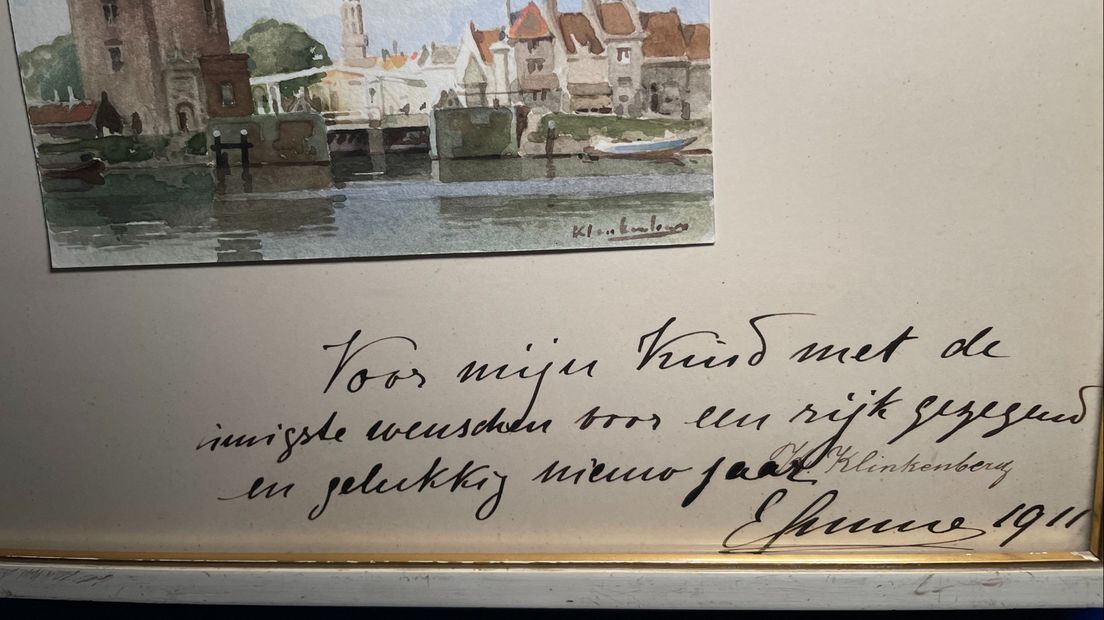 Klinkenberg
Voor mijn Kind met de
innigste wenschen voor een rijk gezegend
en gelukkig nieuw jaar
K. Klinkenberg
Emma 1911